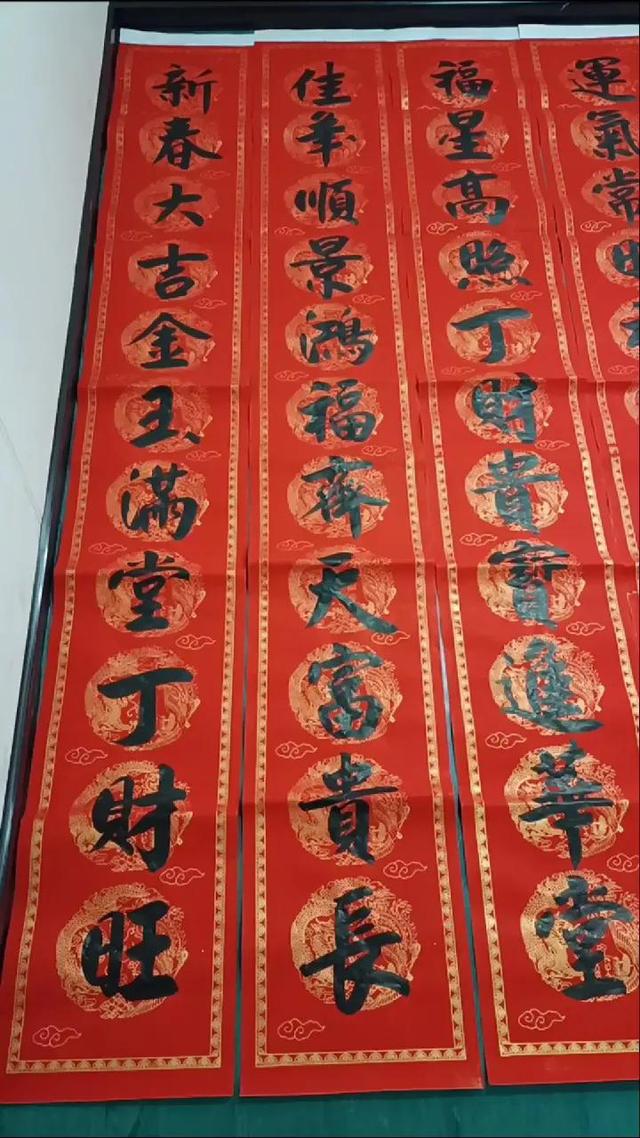 新春大吉金玉滿堂丁財旺
佳年順景鴻福齊天富貴長
福星髙照丁財貴寶進華堂
運氣常